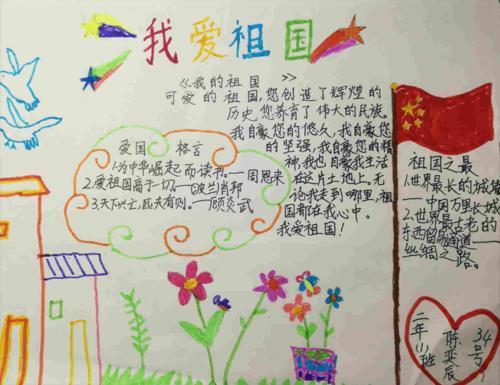 我爱祖国
《我的祖国》
可爱的祖国,您创造了辉煌的
历史,您养育了伟大的民族。
我自豪您的悠久,我自豪您
的坚强,我自豪您的精
神,我也自豪我生活
在这片土地上,无
论我走到哪里,祖
国都在我心中。
我爱祖国!
爱国 格言
1.为中华崛起而读书。—周恩来
2.爱祖国高于一切。—(波兰)肖邦
3.天下兴亡,匹夫有则。—顾炎武
祖国之最
1.世界最长的城墙
—中国万里长城
2.世界最古老的
东西留易通道—
丝绸之路。
二年(1)班
陈奕辰
34号